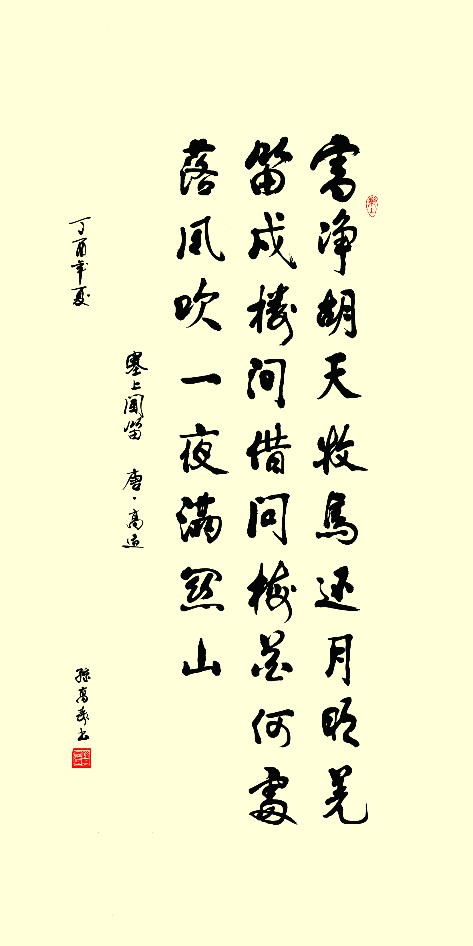 雪净胡天牧馬还月明羌
笛戍楼间借问梅花何處
落风吹一夜满關山
塞上闻笛 唐·高适
丁酉年夏
孫高书